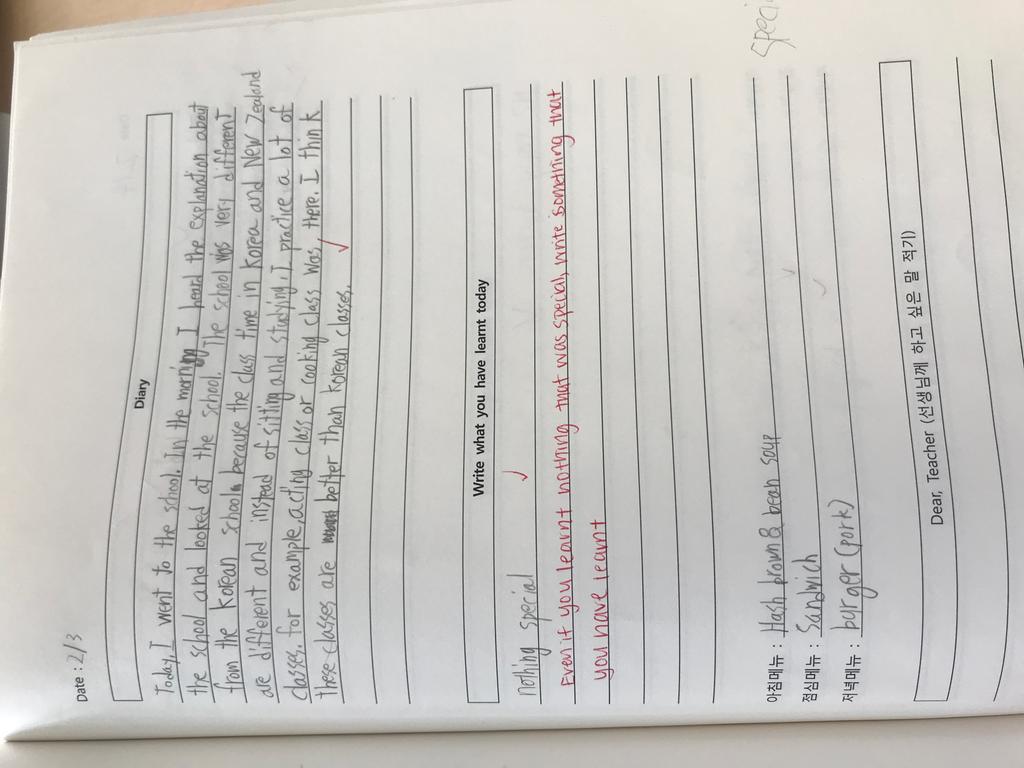 Date : 2/3
Diary
Today, I went to the school. In the morning I heard the explanation about
the school and looked at the school. The school was very different
from the Korean school. because the class time in Korea and New Zealand
are different and instead of sitting and studying, I practice a lot of
classes. for example, acting class or cooking class was, there. I think
these classes are better than Korean classes.
Write what you have learnt today
nothing special
Even if you learnt nothing that was special, write something that
you have learnt
아침메뉴 : Hash brown & bean soup
점심메뉴 : Sandwich
저녁메뉴 : burger (pork)
Dear, Teacher (선생님께 하고 싶은 말 적기)